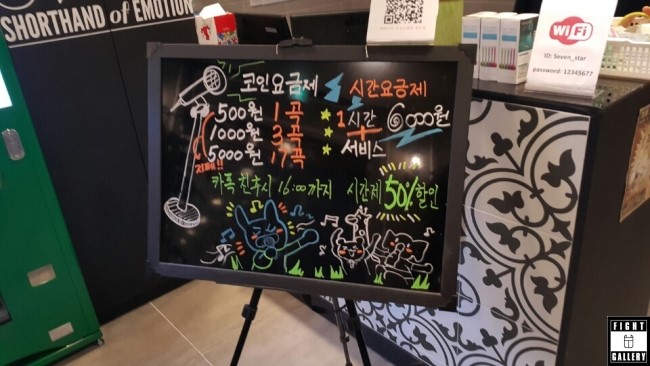 SHORTHAND of EMOTION
WiFi
ID: Seven_star
password: 12345677
코인요금제
시간요금제
500원 1곡
1000원 3곡
5000원 17곡
1시간 6000원
+
서비스
카톡친추시 16:00까지 시간제 50% 할인
FIGHT
GALLERY